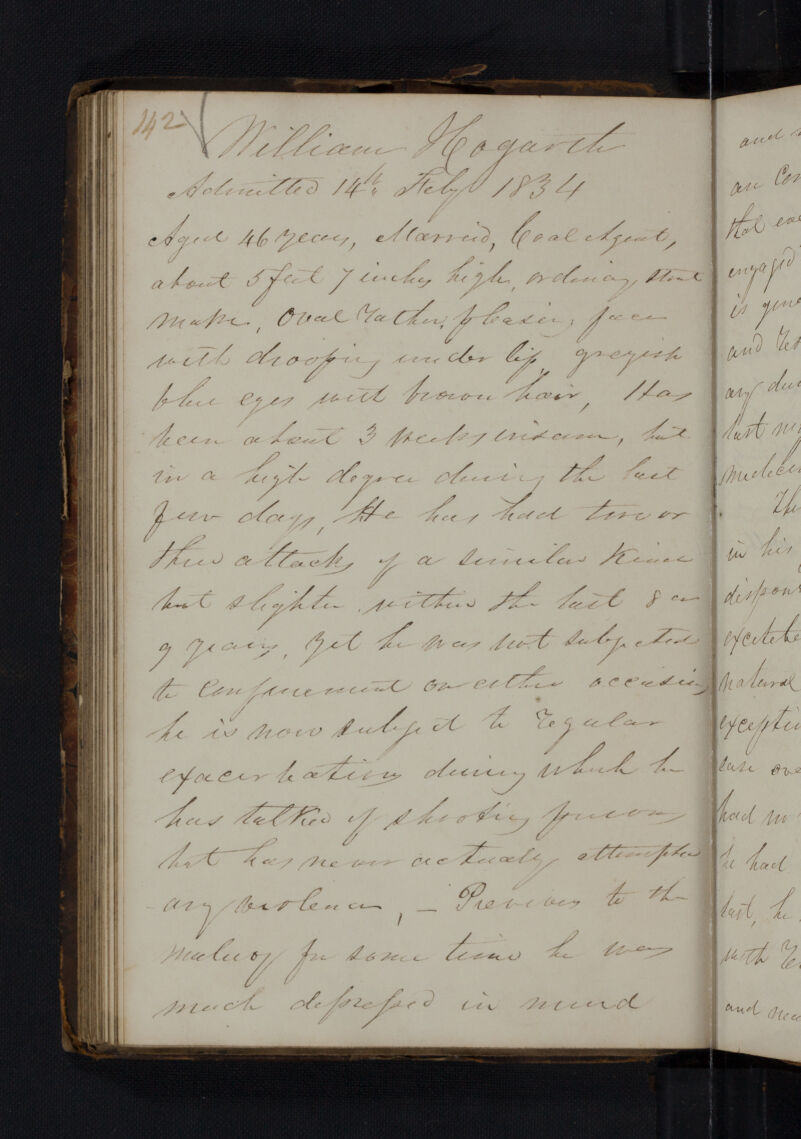 142
William Hogarth
Admitted 14th Feby 1834
Aged 46 years, Married, Coal Agent,
about 5 feet 7 inches high, ordinary stout
make, Oval rather pleasing face
with drooping under lip, greyish
blue eyes with brown hair, Has
been about 3 weeks insane, but
in a high degree during the last
few days, He has had two or
three attacks of a similar kind
but slighter within the last 8 or
9 years, yet he was not subjected
to confinement on either occasion
he is now subject to regular
exacerbations during which he
has talked of shooting persons
but has never actually attempted
any violence, — Previous to the
malady for some time he was
much depressed in mind
and
an
that
engaged
is
and
any
last
in his
natural
had
he had
last, he
with
and